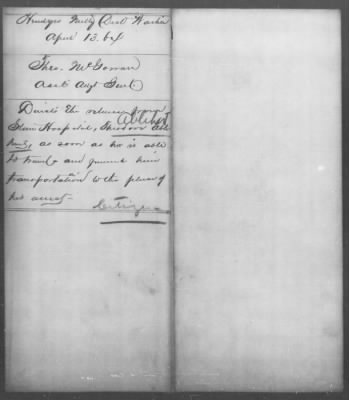 Hundqrs Milty Dist Washn
April 13. 64
Theo. McGowan
Asst Adjt Genl.
Directs the release from
Abbott
Stone Hospital, Theodore Abb
, as soon as he is able
to travel and furnish him
transportation to the place of
his arrest.
Citizen